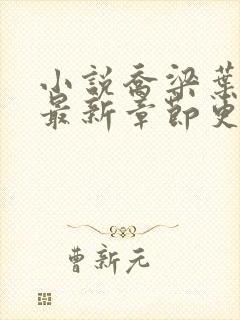 小説喬梁葉
最新章節更
曹新元